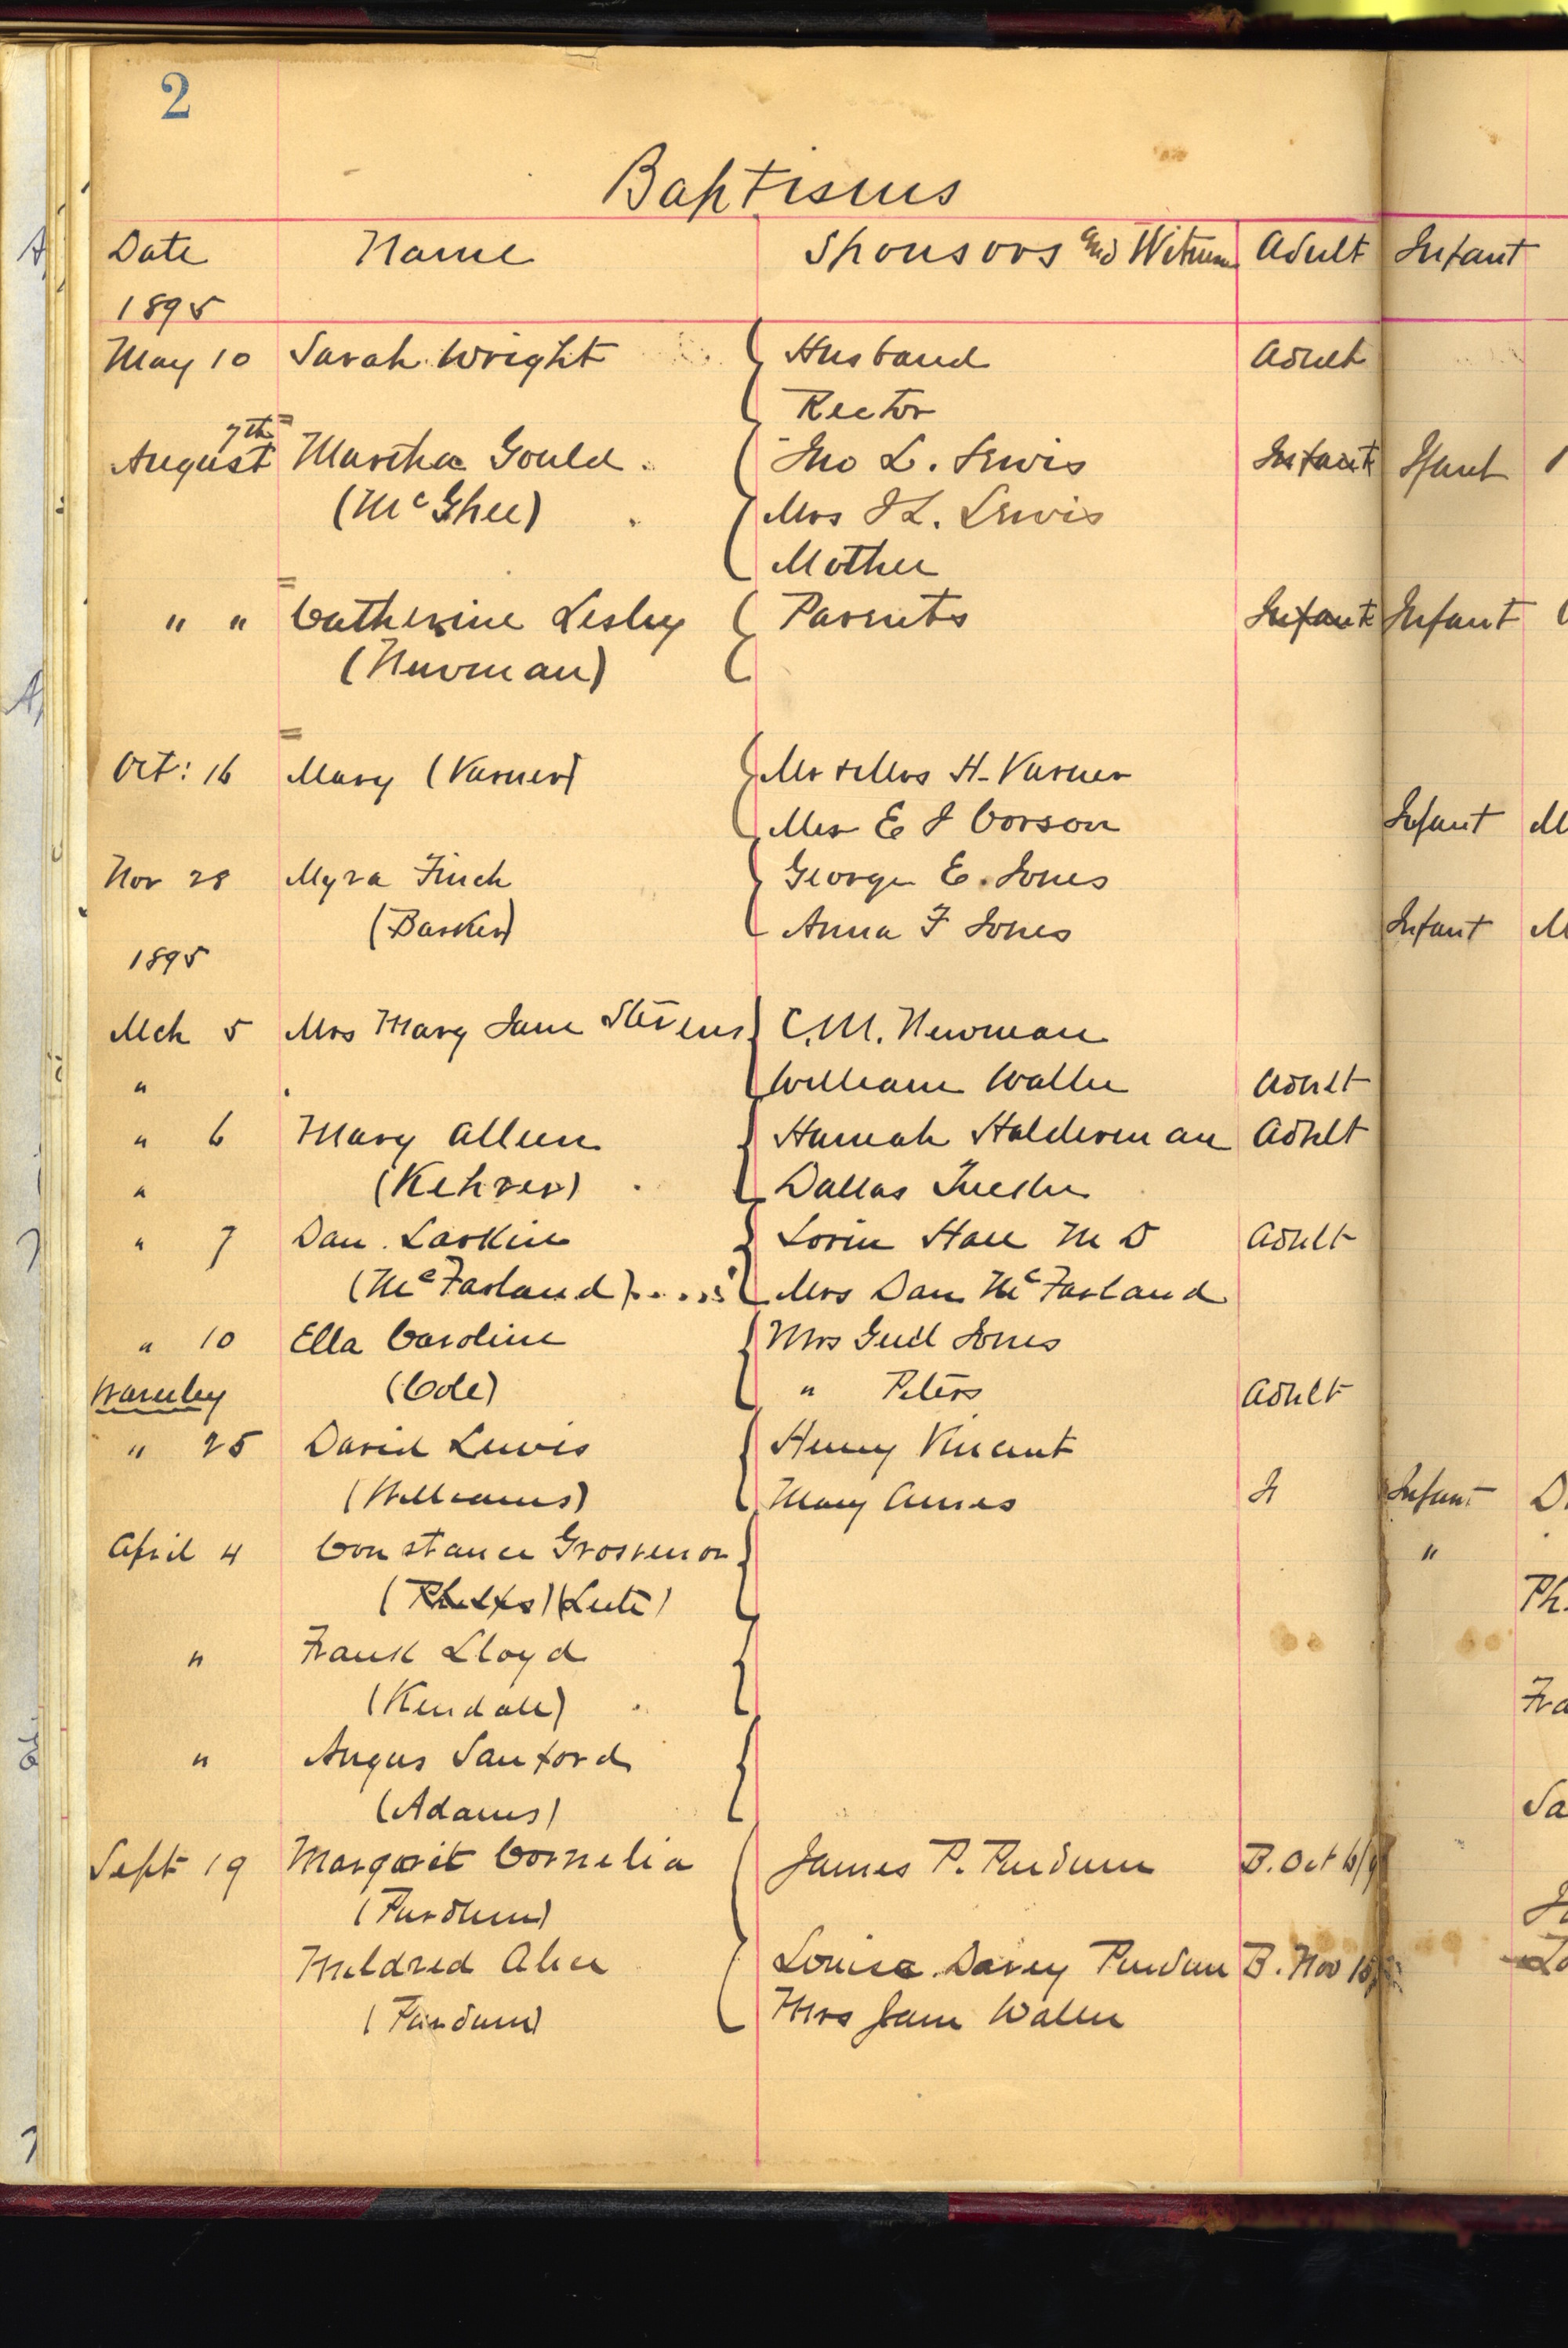 2
Baptisms
Date Name Sponsors and Witness Adult Infant
1895
May 10 Sarah Wright Husband Adult
Rector
7th
August Martha Gould. Jno L. Lewis Infant Ifant
(McGhee) Mrs J L. Lewis
Mother
" " Catherine Lesley Parents Infant Infant
(Newman)
Oct: 16 Mary (Varner) Mr & Mrs H. Varner
Mrs E J Corson Infant M
Nov 28 Myra Finch George E. Jones
(Barker) Anna F Jones Infant M
1895
Mch 5 Mrs Mary Jane Stevens C. M. Newman
" William Waller Adult
" 6 Mary Allen Hannah Halderman Adult
" (Kehrer) Dallas
" 7 Dan. Larkin Lorin Hall M D Adult
(McFarland) Mrs Dan McFarland
" 10 Ella Caroline Mrs Jones
Waverley (Cole) " Peters Adult
" 25 David Lewis Henry Vincent
(Williams) Mary Annes In Infant D
April 4 Constance Grosvenor "
(Phelps) (Lute) Ph
" Frank Lloyd
(Kendall) Fra
" Angus Sanford
(Adams) Sa
Sept 19 Margaret Cornelia James P. Purdum B. Oct
(Purdum)
Mildred Alice Louisa Davey Purdum B. Nov
(Purdum) Mrs Jane Waller